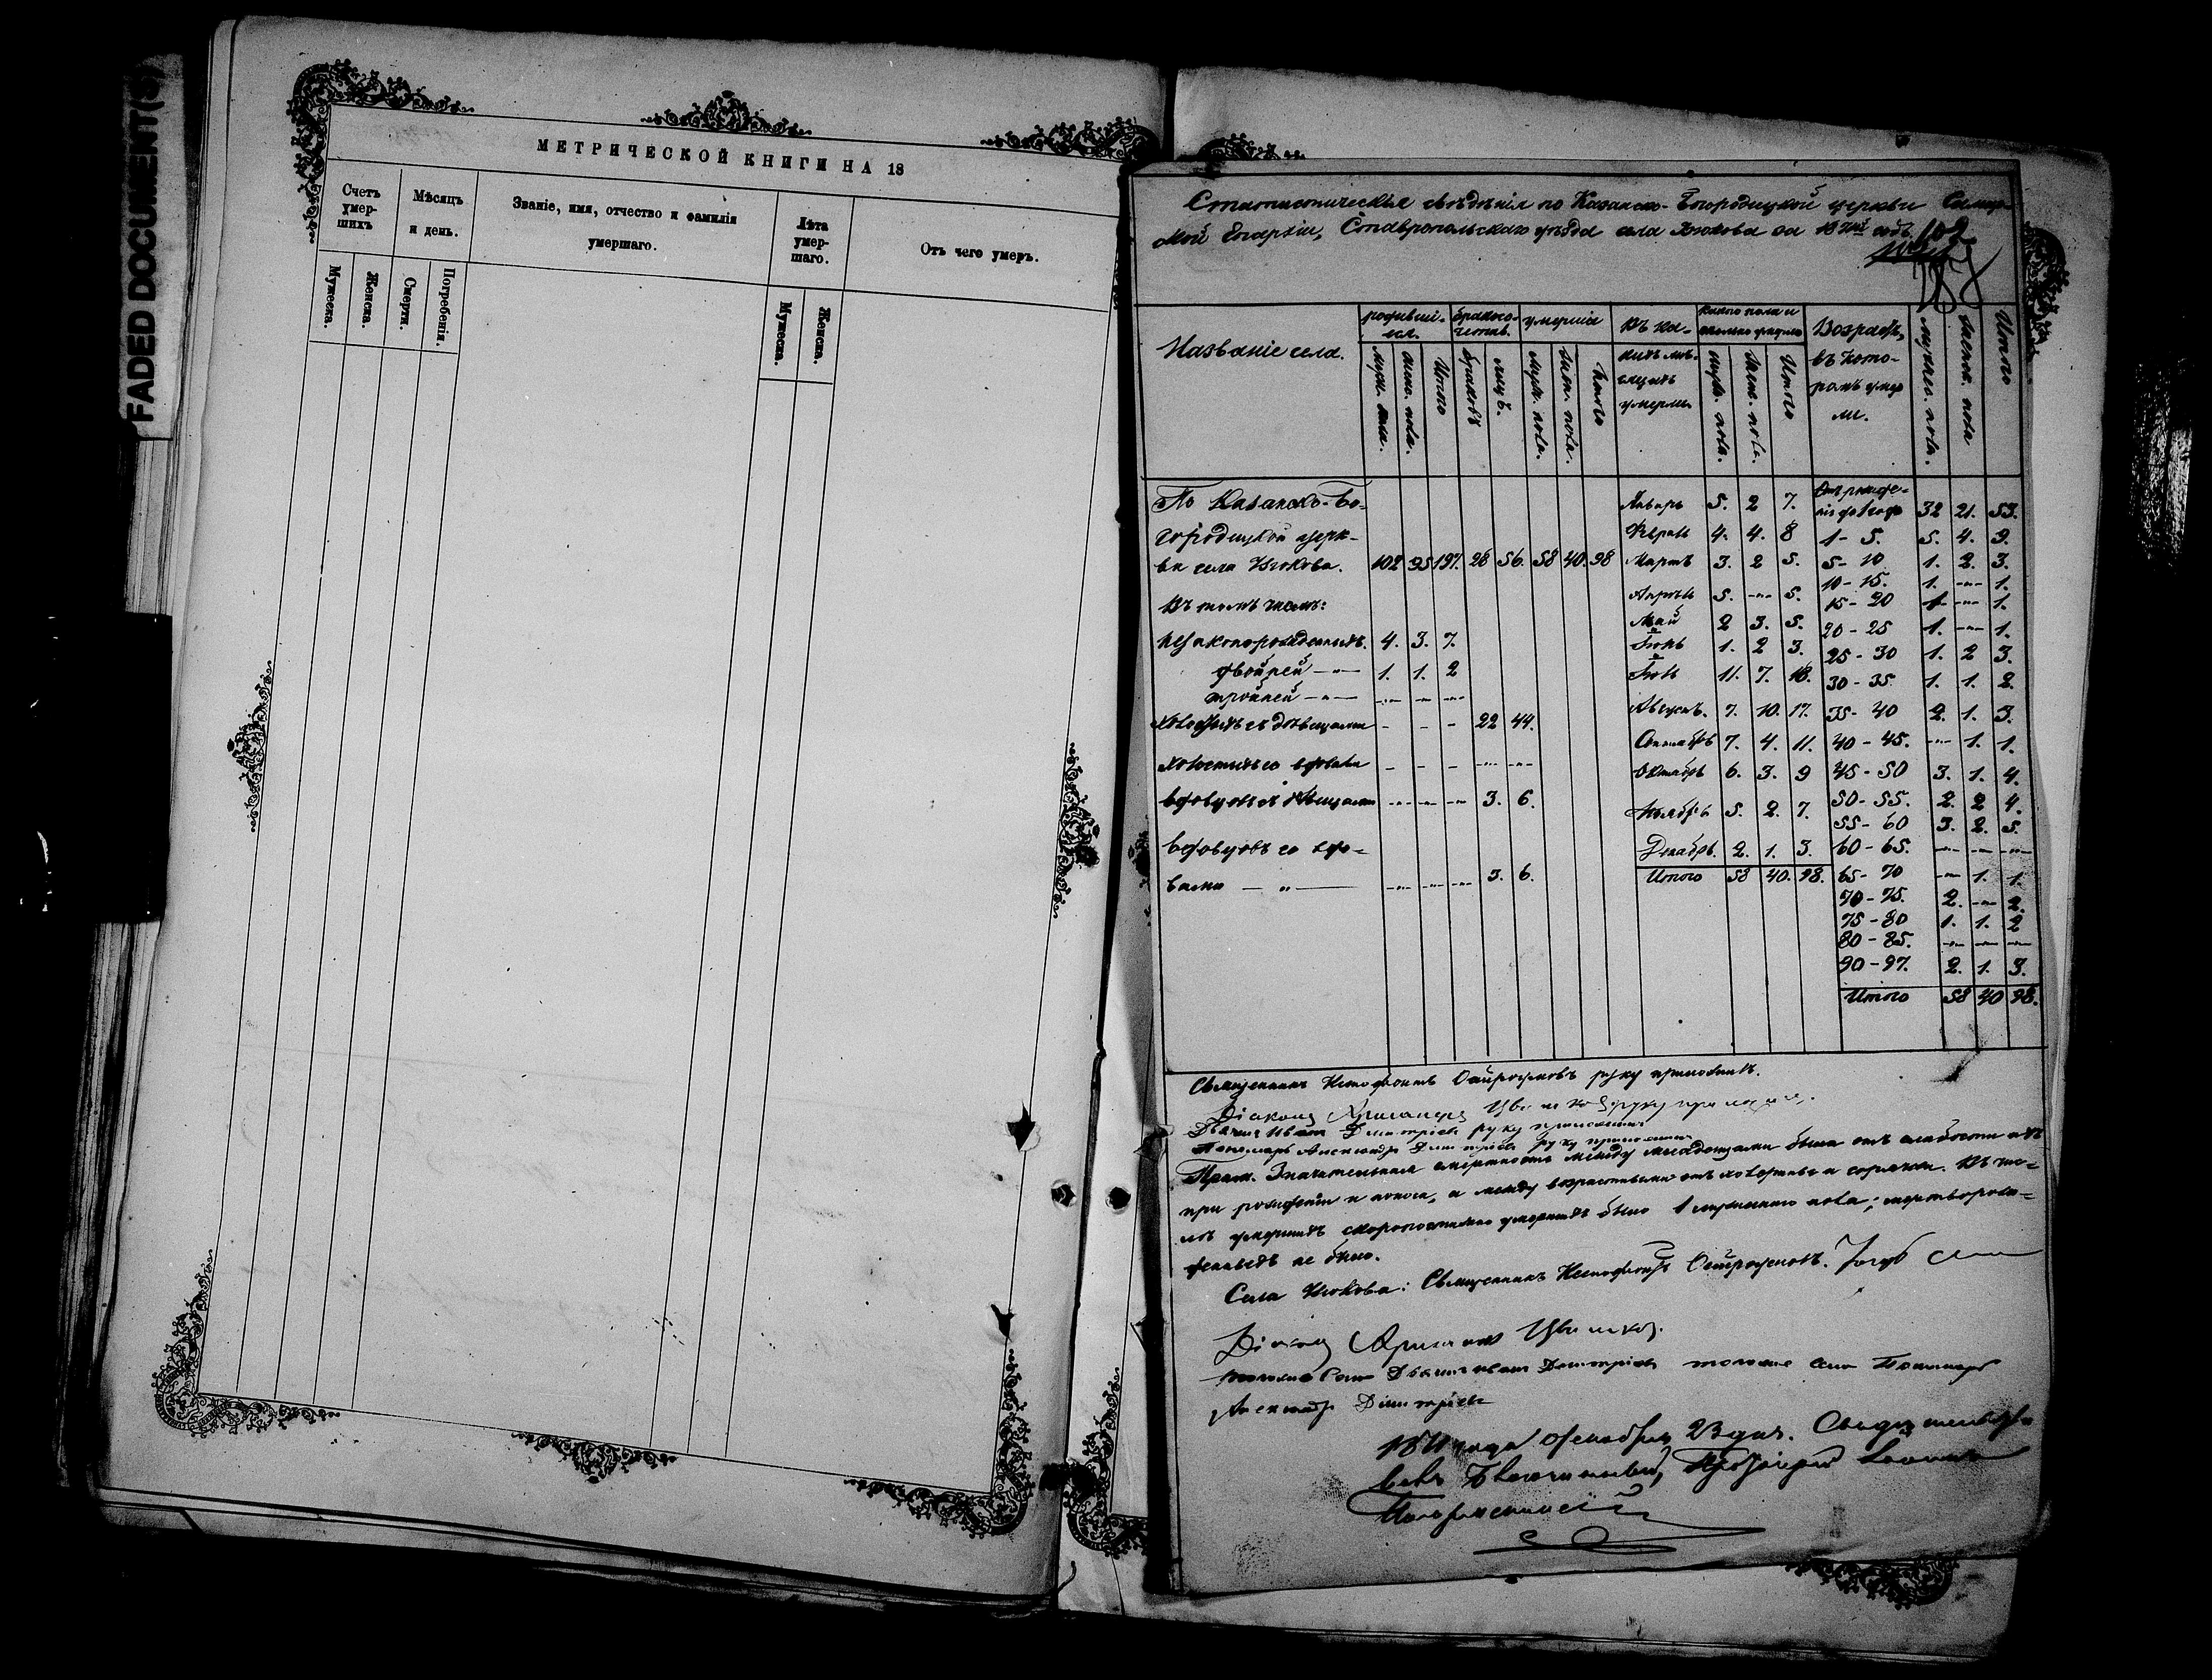 FADED DOCUMENT(S)
МЕТРИЧЕСКОЙ КНИГИ НА 18
Счетъ умерших
Мѣсяцъ и день.
Званіе, имя, отчество и фамилія умершаго.
Лѣта умершаго.
Отъ чего умеръ.
Мужеска.
Женска.
Смерти.
Погребенія.
Мужеска.
Женска.
Статистическія свѣдѣнія по Казанско-Богородицкой церкви Самар-
ской Епархіи, Ставропольскаго уѣзда села за 18 годъ.
Названіе села.
родивші-еся.
бракосочетав.
умершіе
Въ ка-кихъ мѣ-сяцахъ умерли
Какого пола и сколько умерло
Возрастъ, въ кото-ромъ умер-ли.
мужес. пола.
женск. пола
Итого
муж. пола.
женс. пола.
Итого
браковъ
лицъ.
муж. пола.
жен. пола.
Итого
муж. пола.
жен. пола.
Итого
По Казанско-Бо-
городицкой церк-
ви села 102 95 197. 28 56. 58 40. 98
Въ томъ числѣ:
незаконорожденныхъ. 4. 3. 7.
двойней — 1. 1. 2
тройней —
холостыхъ съ дѣвицами - - - 22 44.
холостыхъ со вдовами
вдовцовъ съ дѣвицами 3. 6.
вдовцовъ со вдо-
вами — " — 3. 6.
Январь 5. 2 7.
Февраль 4. 4. 8
Мартъ 3. 2 5.
Апрѣль 5. -"- 5.
Май 2 3. 5.
Іюнь 1. 2 3.
Іюль 11. 7. 18.
Августъ. 7. 10. 17.
Сентябрь 7. 4. 11.
Октябрь 6. 3. 9
Ноябрь 5. 2. 7.
Декабрь. 2. 1. 3.
Итого 58 40. 98.
Отъ рожде-
нія до 1 года 32 21. 53.
1 - 5. 5. 4. 9.
5 - 10 1. 2. 3.
10 - 15. 1. -"- 1.
15 - 20 1 -"- 1.
20 - 25 1. -"- 1.
25 - 30 1. 2 3.
30 - 35. 1. 1. 2.
35 - 40 2. 1. 3.
40 - 45. -"- 1. 1.
45 - 50 3. 1. 4.
50 - 55. 2. 2 4.
55 - 60 3. 2. 5.
60 - 65. -"- -"- -"-
65 - 70 -"- 1. 1.
70 - 75. 2. -"- 2.
75 - 80 1. 1. 2
80 - 85. -"- -"- -"-
90 - 97. 2. 1. 3.
Итого 58 40 98.
Священникъ Ксенофонтъ руку приложилъ.
Діаконъ руку приложилъ.
Дьячекъ Иванъ Димитріевъ руку приложилъ
Пономарь Александръ Димитріевъ руку приложилъ
Прим. Значительная смертность между младенцами была отъ слабости ихъ
при рожденіи и поноса, а между возрастными отъ и горячки. Въ чис-
лѣ умершихъ скоропостижно умершихъ было 1 мужескаго пола; мертворож-
денныхъ не было.
Села : Священникъ Ксенофонтъ
Діаконъ
Дьячекъ Иванъ Димитріевъ Пономарь
Александръ Димитріевъ
года декабря 23 дня. Свидѣтельство-
валъ Благочинный, Протоіерей